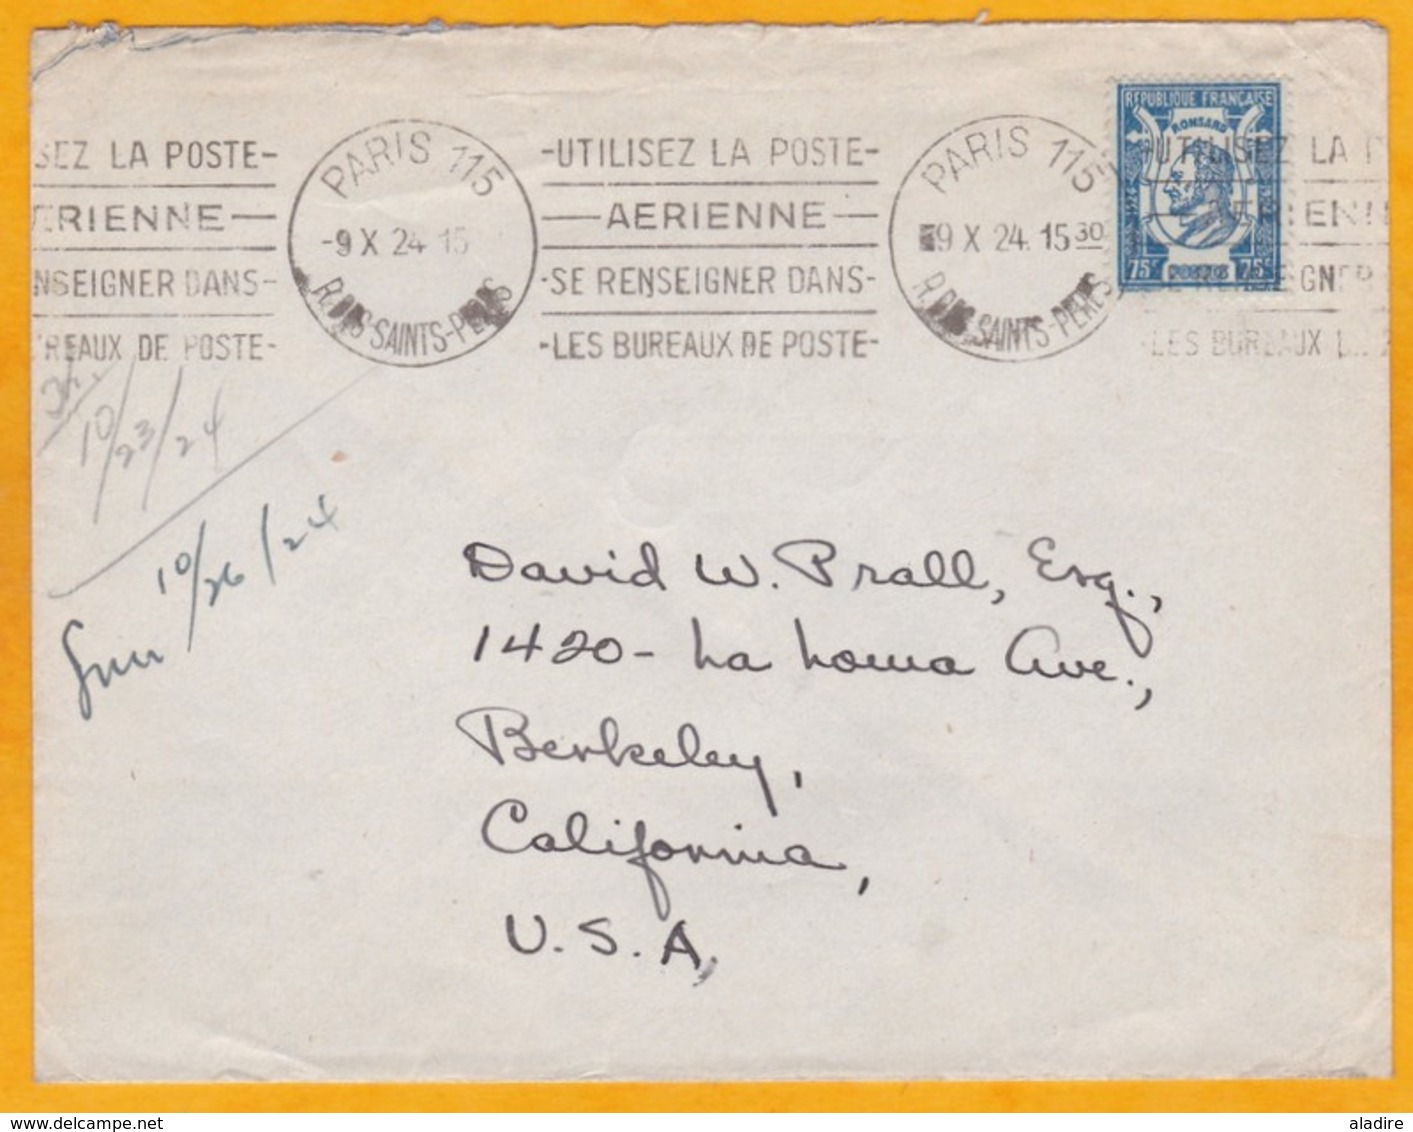 SEZ LA POSTE-
ERIENNE-
NSEIGNER DANS-
REAUX DE POSTE-
PARIS 115
-9 X 24 15
R. DES SAINTS-PERES
-UTILISEZ LA POSTE-
-AERIENNE-
-SE RENSEIGNER DANS-
-LES BUREAUX DE POSTE-
PARIS 115
9 X 24. 15 30
R. DES SAINTS-PERES
REPUBLIQUE FRANÇAISE
RONSARD
75c POSTES 75c
UTILISEZ LA P
AERIENN
SEIGNER
-LES BUREAUX
10/23/24
10/26/24
David W. Prall, Esq.,
1420- La Loma Ave.,
Berkeley,
California,
U.S.A,
www.delcampe.net
aladire